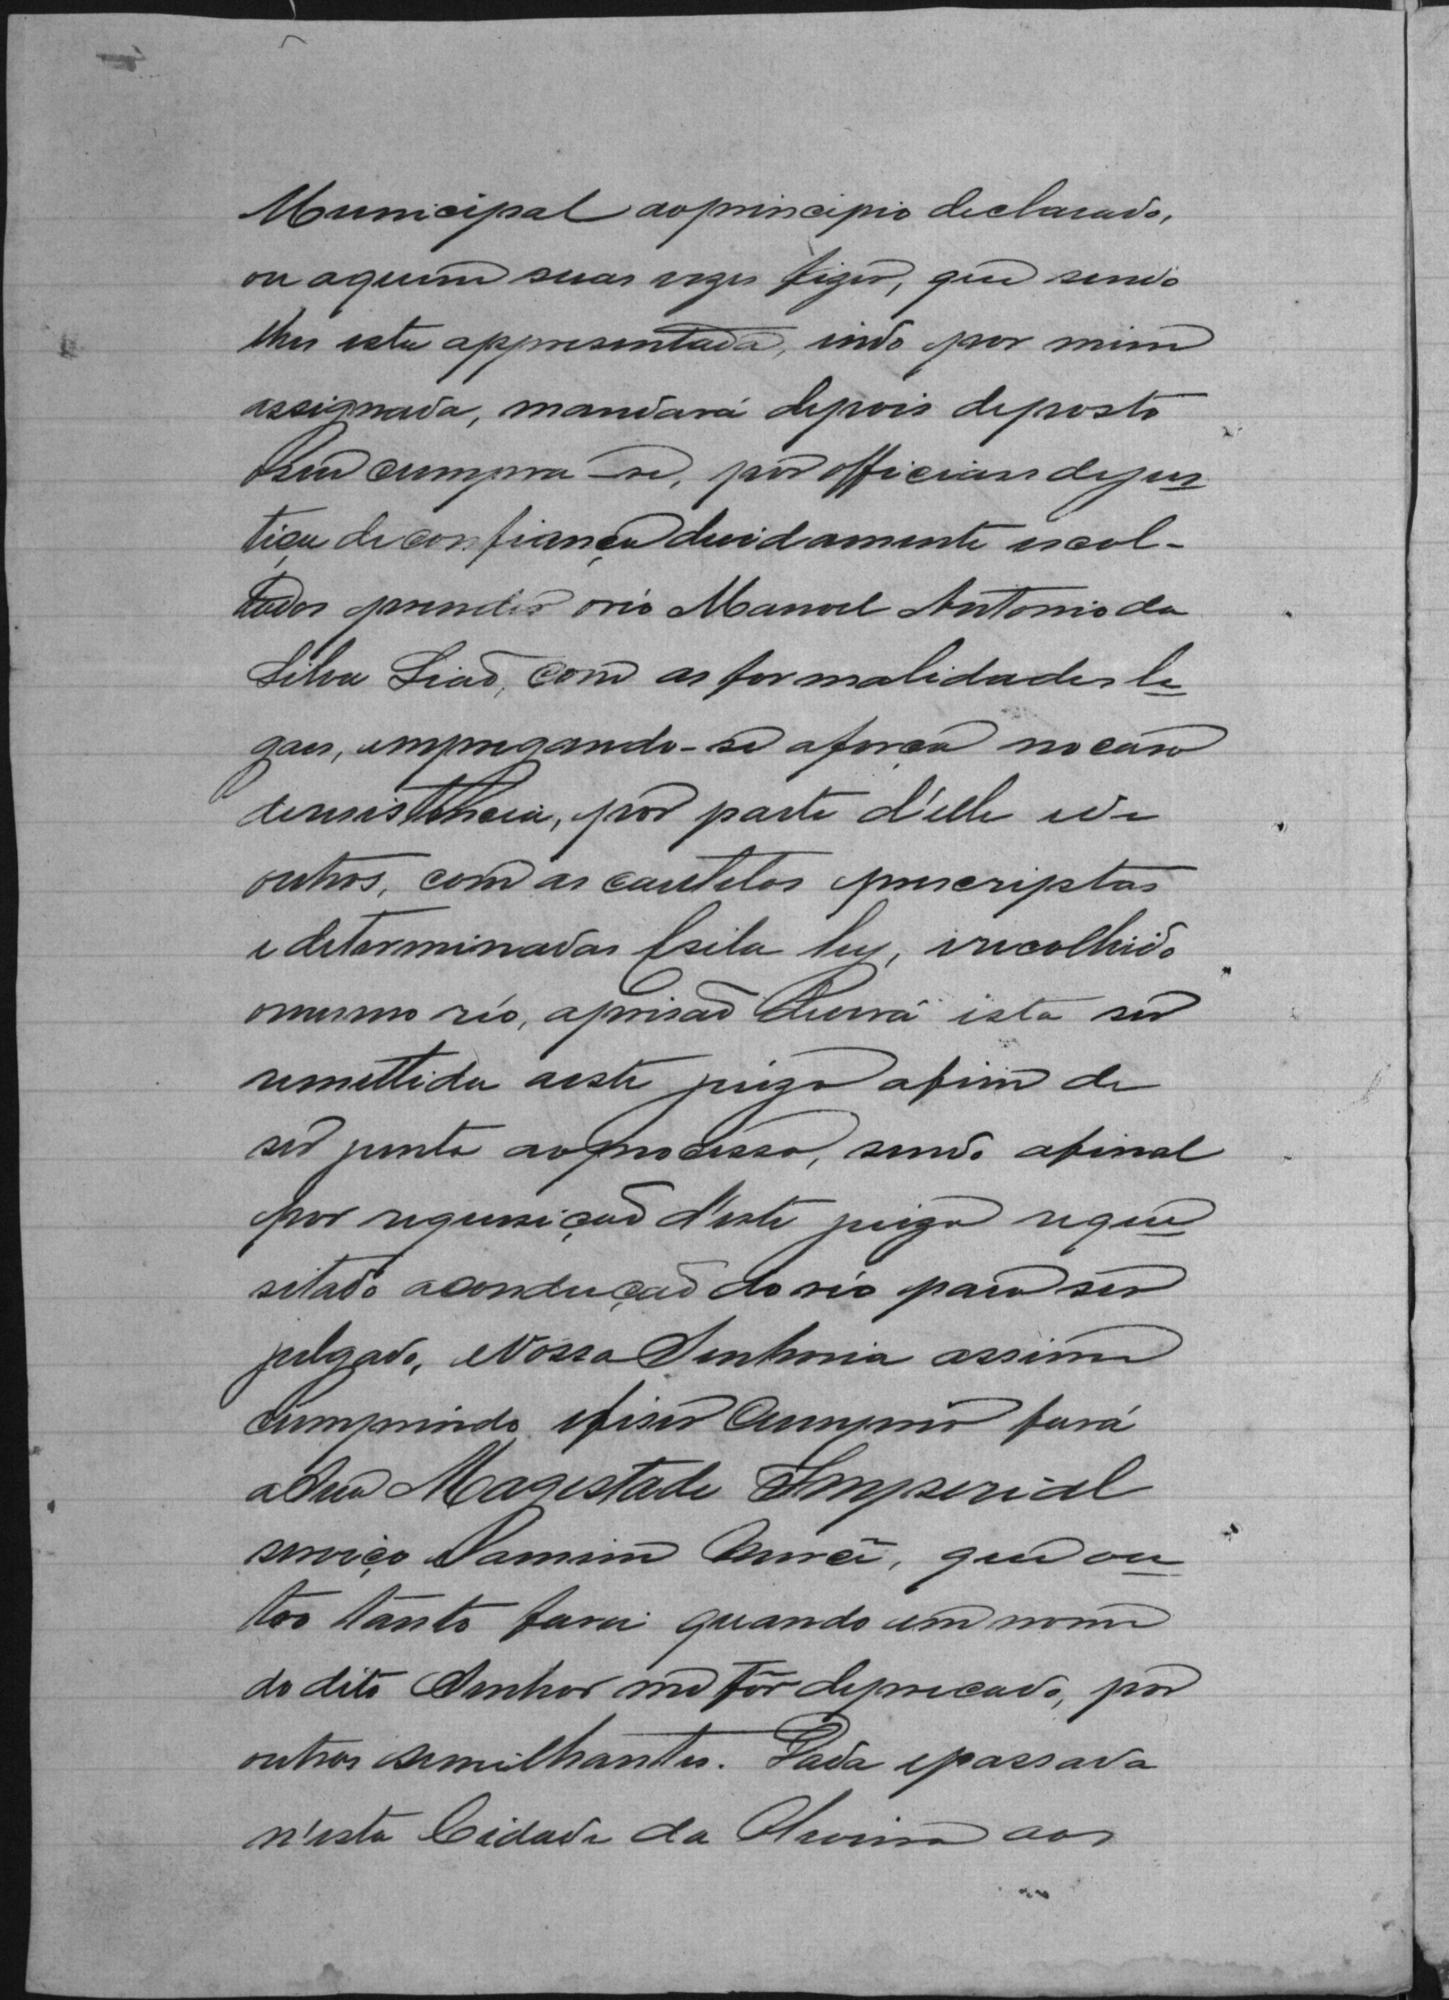 Municipal aoprincipio declarado,
ou aquem suas vezes fizer, que sendo
lhes esta appresentada, indo por mim
assignada, mandará depois deposto
Oseu cumpra-se, por officiaes dejus
tiça deconfiança devidamente escol-
tados prender oréo Manoel Antonio da
Silva Leão, com as formalidades le
gaes, empregando-se aforça nocaso
deresistencia, por parte d'elle ede
outros, com as cautelas prescriptas
e determinadas pela ley, erecolhido
omesmo réo, aprisão Deverá esta ser
remettida aeste juizo afim de
ser junta aoprocesso, sendo afinal
por requesição d'este juizo reque
sitado aconducção do réo para ser
julgado, eVossa Senhoria assim
Cumprindo efizer Cumprir fará
aSua Magestade Imperial
serviço eamim Mercê, que ou
tro tanto farei quando em nome
do dito Senhor me fôr deprecado, por
outras semilhantes. Dada epassada
n'esta Cidade da Oliveira aos